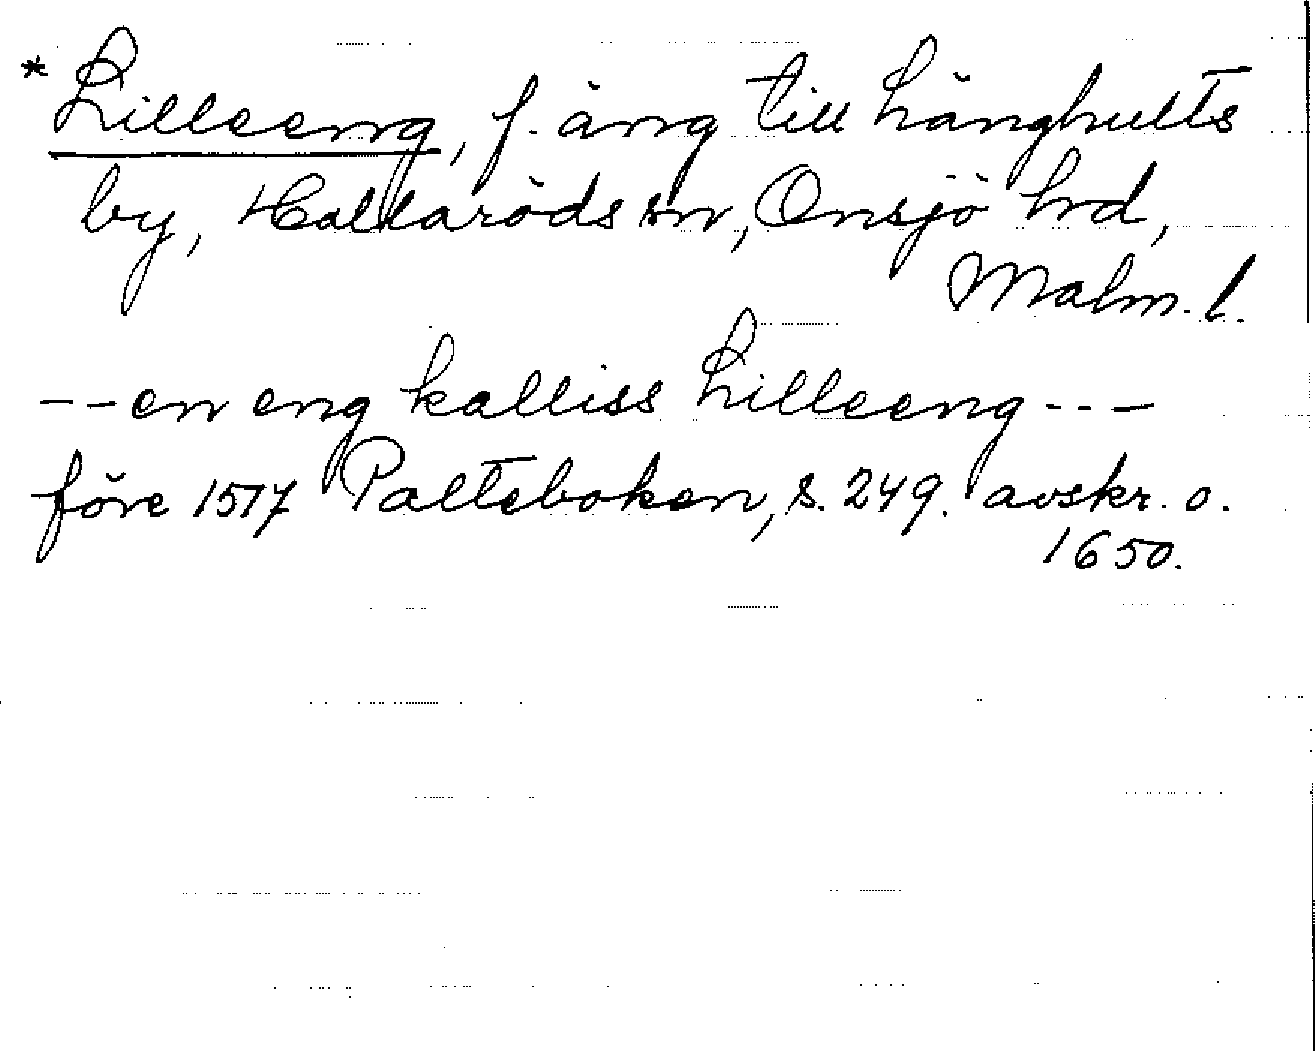 * Lilleeng, f. äng till Långhults
by, Hallaröds sn, Onsjö hd,
Malm. l.
-- en eng kalliss Lilleeng ---
före 1517 Palteboken, s. 249. avskr. o.
1650.